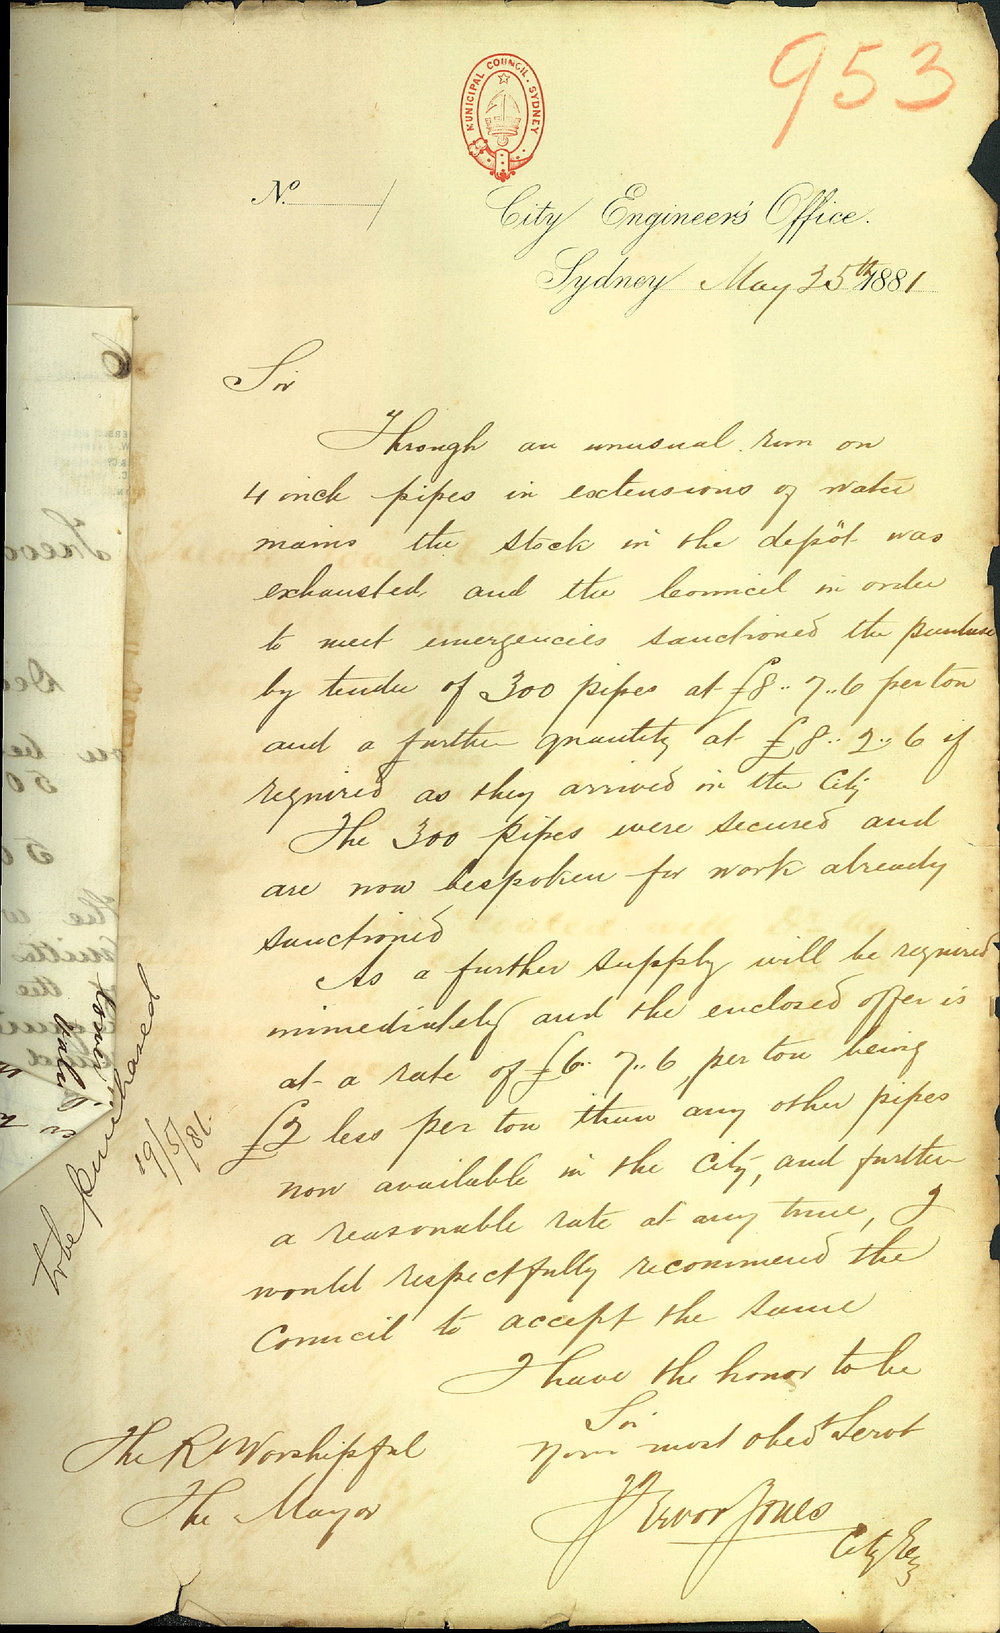 953
MUNICIPAL COUNCIL. SYDNEY
No. /
City Engineer's Office.
Sydney May 25th 1881
Sir
Through an unusual run on
4 inch pipes in extensions of water
mains the stock in the depôt was
exhausted and the Council in order
to meet emergencies sanctioned the purchase
by tender of 300 pipes at £8..7..6 per ton
and a further quantity at £8..2..6 if
required as they arrived in the City
The 300 pipes were secured and
are now bespoken for work already
sanctioned
As a further supply will be required
immediately and the enclosed offer is
at a rate of £6..7..6 per ton being
£2 less per ton than any other pipes
now available in the City, and further
a reasonable rate at any time, I
would respectfully recommend the
Council to accept the same
I have the honor to be
Sir
Your most obedt Servt
Trevor Jones
City Eng
The Rt Worshipful
The Mayor
to be purchased
19/5/81.